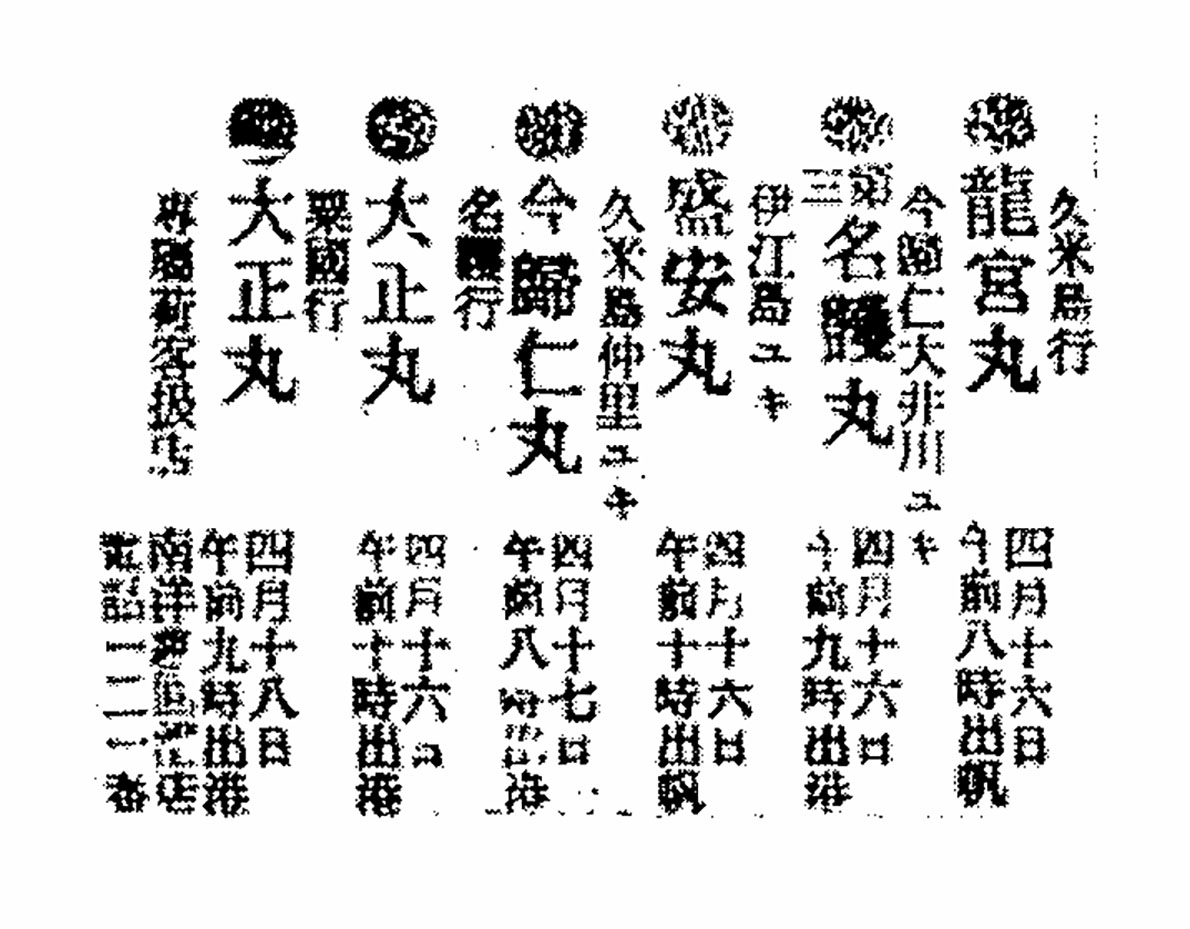 久米島行
龍宮丸
四月十六日
午前八時出帆
今歸仁大井川ユキ
第三名護丸
四月十六日
午前九時出港
伊江島ユキ
盛安丸
四月十六日
午前十時出帆
久米島仲里ユキ
今歸仁丸
四月十七日
午前八時出港
名護行
大正丸
四月十六日
午前十時出港
粟國行
大正丸
四月十八日
午前九時出港
客扱店
南洋
電話
番